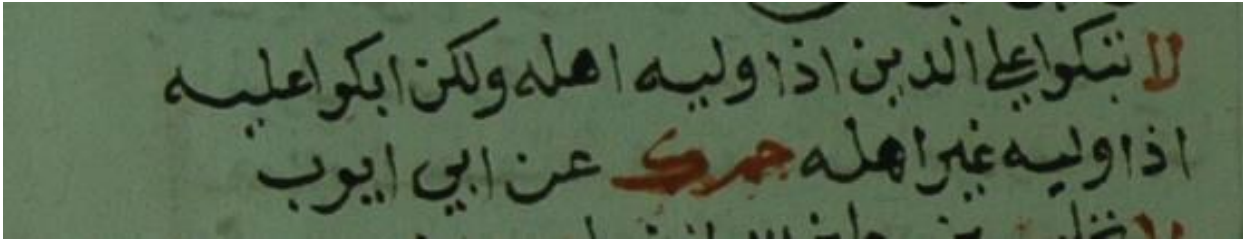 لا تبكوا علي الدين اذا وليه اهله ولكن ابكوا عليه
اذا وليه غير اهله حم ك عن ابي ايوب